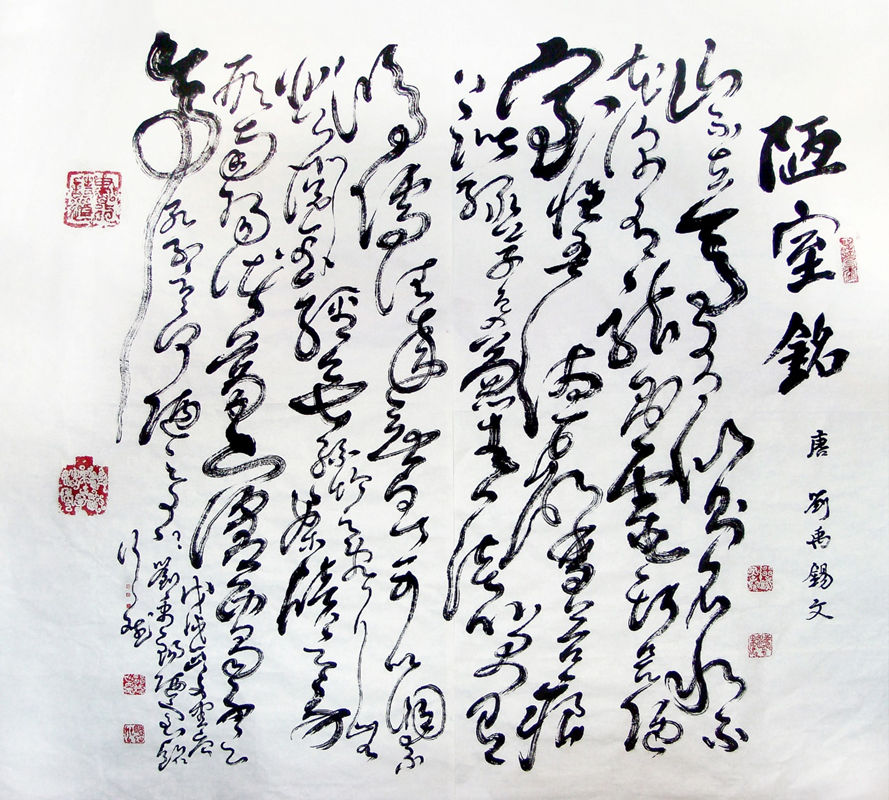 陋室銘
唐 劉禹錫文
山不在高有仙則名水不
在深有龍則靈斯是陋
室惟吾德馨苔痕
上階綠草色入簾青談笑有
鴻儒往來無白丁可以調素
琴閱金經無絲竹之亂耳無案牘之勞
形南陽諸葛廬西蜀子雲
亭孔子云何陋之有
劉禹錫陋室銘
戊戌